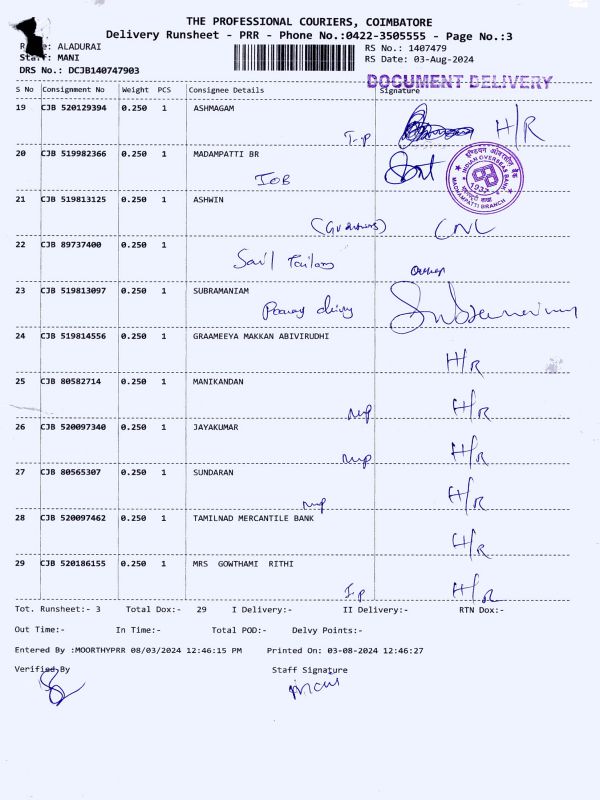 THE PROFESSIONAL COURIERS, COIMBATORE
Delivery Runsheet - PRR - Phone No.:0422-3505555 - Page No.:3
ALADURAI
RS No.: 1407479
Staff: MANI
RS Date: 03-Aug-2024
DRS No.: DCJB140747903
DOCUMENT DELIVERY
S No Consignment No Weight PCS Consignee Details Signature
19 CJB 520129394 0.250 1 ASHMAGAM
H/R
20 CJB 519982366 0.250 1 MADAMPATTI BR
IOB
इण्डियन ओवरसीज़ बैंक
INDIAN OVERSEAS BANK
1937
MADHAMPATTI BRANCH
21 CJB 519813125 0.250 1 ASHWIN
CNL
22 CJB 89737400 0.250 1
23 CJB 519813097 0.250 1 SUBRAMANIAM
Subramaniam
24 CJB 519814556 0.250 1 GRAAMEEYA MAKKAN ABIVIRUDHI
H/R
25 CJB 80582714 0.250 1 MANIKANDAN
H/R
26 CJB 520097340 0.250 1 JAYAKUMAR
H/R
27 CJB 80565307 0.250 1 SUNDARAN
H/R
28 CJB 520097462 0.250 1 TAMILNAD MERCANTILE BANK
H/R
29 CJB 520186155 0.250 1 MRS GOWTHAMI RITHI
H/R
Tot. Runsheet:- 3 Total Dox:- 29 I Delivery:- II Delivery:- RTN Dox:-
Out Time:- In Time:- Total POD:- Delvy Points:-
Entered By :MOORTHYPRR 08/03/2024 12:46:15 PM Printed On: 03-08-2024 12:46:27
Verified By Staff Signature